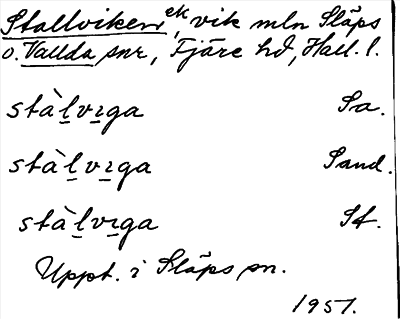 Stallviken, ek, vik mln Släps
o. Vallda snr, Fjäre hd, Hall. l.
stàlvıga Sa.
stàlvıga Sand.
stàlvıga St.
Uppt. i Släps sn.
1951.